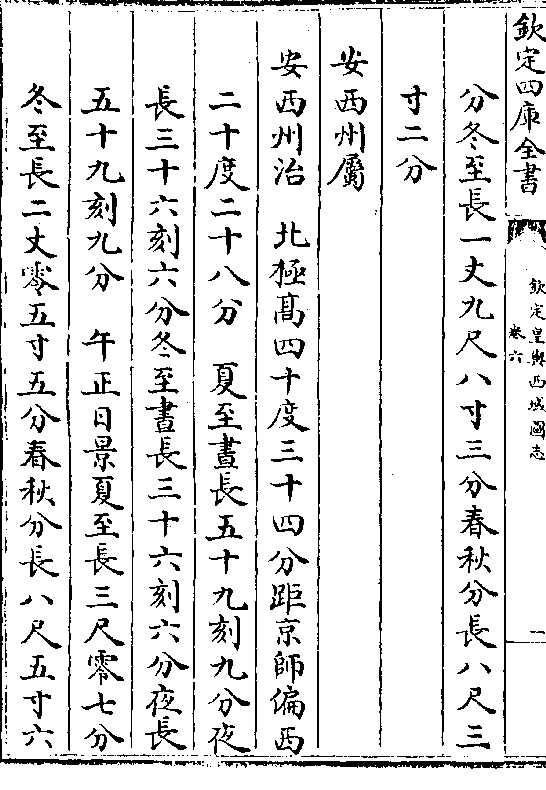 欽定四庫全書
欽定皇輿西域圖志
卷六
一
分冬至長一丈九尺八寸三分春秋分長八尺三
寸二分
安西州屬
安西州治　北極髙四十度三十四分距京師偏西
二十度二十八分　夏至晝長五十九刻九分夜
長三十六刻六分冬至晝長三十六刻六分夜長
五十九刻九分　午正日景夏至長三尺零七分
冬至長二丈零五寸五分春秋分長八尺五寸六